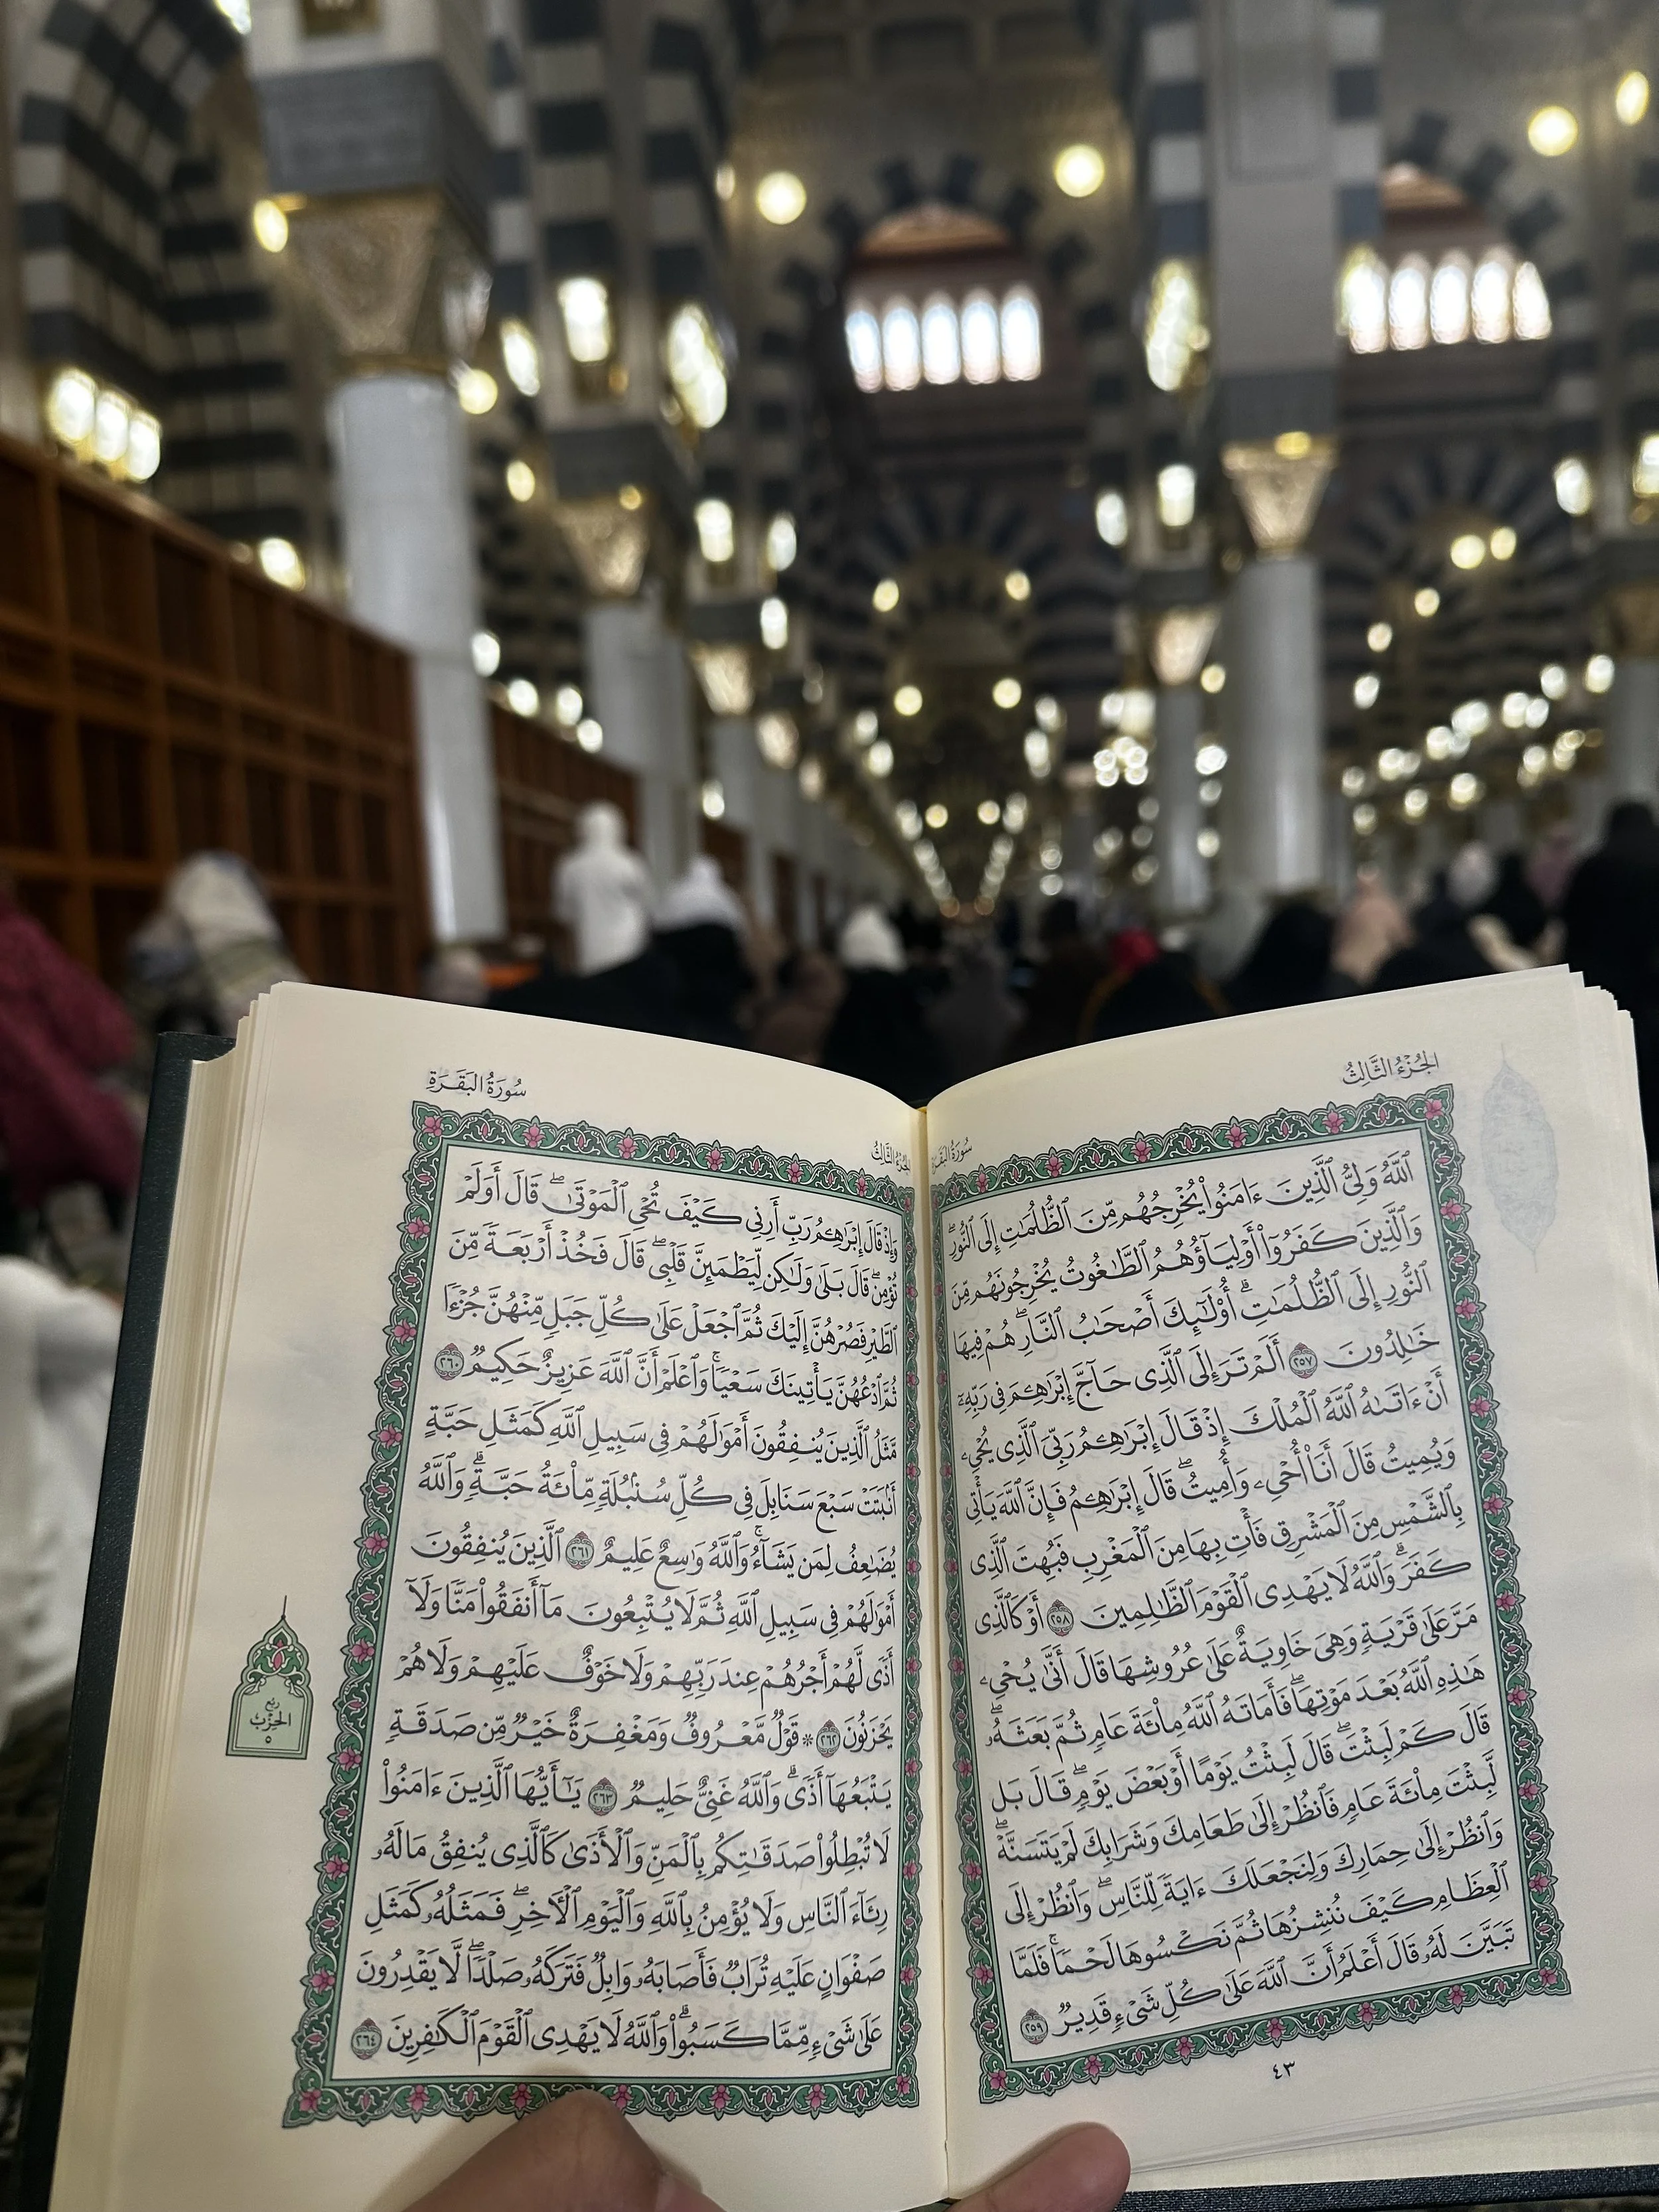 الجُزْءُ الثَّالِثُ
سُورَةُ البَقَرَةِ
ٱللَّهُ وَلِيُّ ٱلَّذِينَ ءَامَنُوا۟ يُخْرِجُهُم مِّنَ ٱلظُّلُمَٰتِ إِلَى ٱلنُّورِۖ
وَٱلَّذِينَ كَفَرُوٓا۟ أَوْلِيَآؤُهُمُ ٱلطَّٰغُوتُ يُخْرِجُونَهُم مِّنَ
ٱلنُّورِ إِلَى ٱلظُّلُمَٰتِۗ أُو۟لَٰٓئِكَ أَصْحَٰبُ ٱلنَّارِۖ هُمْ فِيهَا
خَٰلِدُونَ ٢٥٧ أَلَمْ تَرَ إِلَى ٱلَّذِى حَآجَّ إِبْرَٰهِۦمَ فِى رَبِّهِۦٓ
أَنْ ءَاتَىٰهُ ٱللَّهُ ٱلْمُلْكَ إِذْ قَالَ إِبْرَٰهِۦمُ رَبِّىَ ٱلَّذِى يُحْىِۦ
وَيُمِيتُ قَالَ أَنَا۠ أُحْىِۦ وَأُمِيتُۖ قَالَ إِبْرَٰهِۦمُ فَإِنَّ ٱللَّهَ يَأْتِى
بِٱلشَّمْسِ مِنَ ٱلْمَشْرِقِ فَأْتِ بِهَا مِنَ ٱلْمَغْرِبِ فَبُهِتَ ٱلَّذِى
كَفَرَۗ وَٱللَّهُ لَا يَهْدِى ٱلْقَوْمَ ٱلظَّٰلِمِينَ ٢٥٨ أَوْ كَٱلَّذِى
مَرَّ عَلَىٰ قَرْيَةٍ وَهِىَ خَاوِيَةٌ عَلَىٰ عُرُوشِهَا قَالَ أَنَّىٰ يُحْىِۦ
هَٰذِهِ ٱللَّهُ بَعْدَ مَوْتِهَاۖ فَأَمَاتَهُ ٱللَّهُ مِا۟ئَةَ عَامٍ ثُمَّ بَعَثَهُۥۖ
قَالَ كَمْ لَبِثْتَۖ قَالَ لَبِثْتُ يَوْمًا أَوْ بَعْضَ يَوْمٍۖ قَالَ بَل
لَّبِثْتَ مِا۟ئَةَ عَامٍ فَٱنظُرْ إِلَىٰ طَعَامِكَ وَشَرَابِكَ لَمْ يَتَسَنَّهْۖ
وَٱنظُرْ إِلَىٰ حِمَارِكَ وَلِنَجْعَلَكَ ءَايَةً لِّلنَّاسِۖ وَٱنظُرْ إِلَى
ٱلْعِظَامِ كَيْفَ نُنشِزُهَا ثُمَّ نَكْسُوهَا لَحْمًاۚ فَلَمَّا
تَبَيَّنَ لَهُۥ قَالَ أَعْلَمُ أَنَّ ٱللَّهَ عَلَىٰ كُلِّ شَىْءٍ قَدِيرٌ ٢٥٩
٤٣
الجُزْءُ الثَّالِثُ
سُورَةُ البَقَرَةِ
وَإِذْ قَالَ إِبْرَٰهِۦمُ رَبِّ أَرِنِى كَيْفَ تُحْىِ ٱلْمَوْتَىٰۖ قَالَ أَوَلَمْ
تُؤْمِنۖ قَالَ بَلَىٰ وَلَٰكِن لِّيَطْمَئِنَّ قَلْبِىۖ قَالَ فَخُذْ أَرْبَعَةً مِّنَ
ٱلطَّيْرِ فَصُرْهُنَّ إِلَيْكَ ثُمَّ ٱجْعَلْ عَلَىٰ كُلِّ جَبَلٍ مِّنْهُنَّ جُزْءًا
ثُمَّ ٱدْعُهُنَّ يَأْتِينَكَ سَعْيًاۚ وَٱعْلَمْ أَنَّ ٱللَّهَ عَزِيزٌ حَكِيمٌ ٢٦٠
مَّثَلُ ٱلَّذِينَ يُنفِقُونَ أَمْوَٰلَهُمْ فِى سَبِيلِ ٱللَّهِ كَمَثَلِ حَبَّةٍ
أَنۢبَتَتْ سَبْعَ سَنَابِلَ فِى كُلِّ سُنۢبُلَةٍ مِّا۟ئَةُ حَبَّةٍۗ وَٱللَّهُ
يُضَٰعِفُ لِمَن يَشَآءُۚ وَٱللَّهُ وَٰسِعٌ عَلِيمٌ ٢٦١ ٱلَّذِينَ يُنفِقُونَ
أَمْوَٰلَهُمْ فِى سَبِيلِ ٱللَّهِ ثُمَّ لَا يُتْبِعُونَ مَآ أَنفَقُوا۟ مَنًّا وَلَآ
أَذًى لَّهُمْ أَجْرُهُمْ عِندَ رَبِّهِمْ وَلَا خَوْفٌ عَلَيْهِمْ وَلَا هُمْ
يَحْزَنُونَ ٢٦٢ ۞ قَوْلٌ مَّعْرُوفٌ وَمَغْفِرَةٌ خَيْرٌ مِّن صَدَقَةٍ
يَتْبَعُهَآ أَذًىۗ وَٱللَّهُ غَنِىٌّ حَلِيمٌ ٢٦٣ يَٰٓأَيُّهَا ٱلَّذِينَ ءَامَنُوا۟
لَا تُبْطِلُوا۟ صَدَقَٰتِكُم بِٱلْمَنِّ وَٱلْأَذَىٰ كَٱلَّذِى يُنفِقُ مَالَهُۥ
رِئَآءَ ٱلنَّاسِ وَلَا يُؤْمِنُ بِٱللَّهِ وَٱلْيَوْمِ ٱلْءَاخِرِۖ فَمَثَلُهُۥ كَمَثَلِ
صَفْوَانٍ عَلَيْهِ تُرَابٌ فَأَصَابَهُۥ وَابِلٌ فَتَرَكَهُۥ صَلْدًاۖ لَّا يَقْدِرُونَ
عَلَىٰ شَىْءٍ مِّمَّا كَسَبُوا۟ۗ وَٱللَّهُ لَا يَهْدِى ٱلْقَوْمَ ٱلْكَٰفِرِينَ ٢٦٤
رُبْعُ
الحِزْبِ
٥